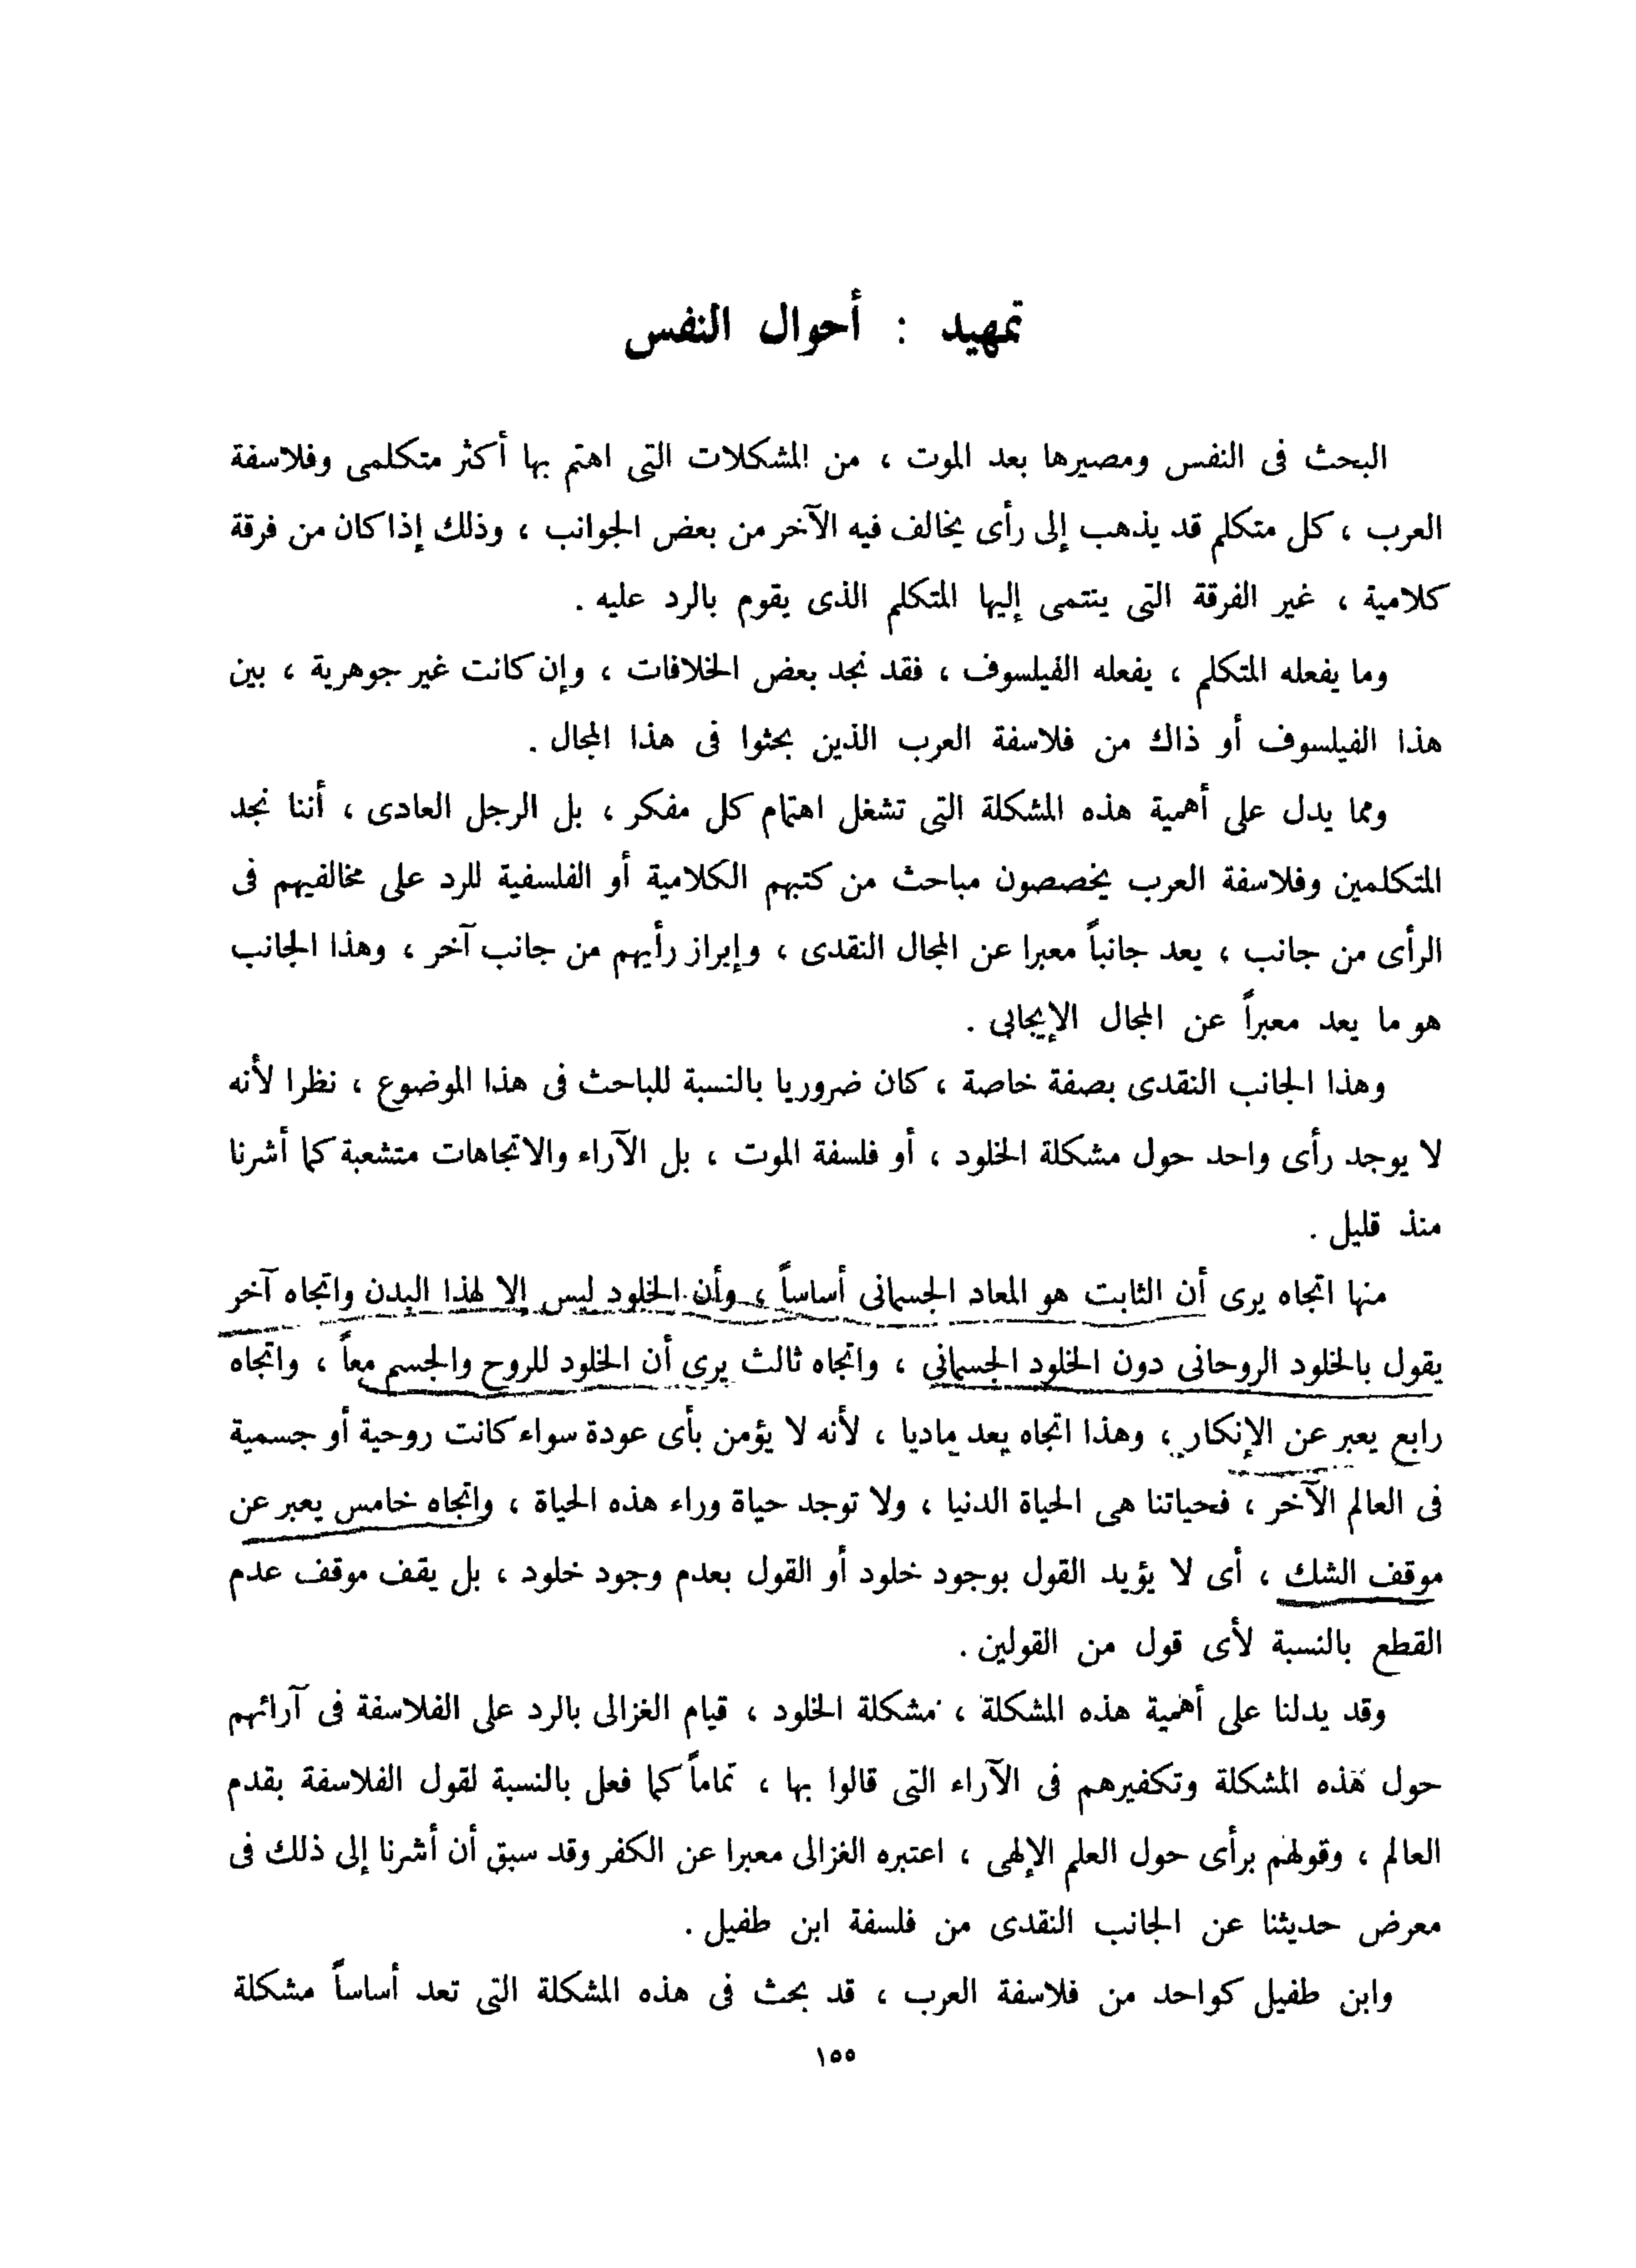 تمهيد : أحوال النفس
البحث فى النفس ومصيرها بعد الموت ، من المشكلات التى اهتم بها أكثر متكلمى وفلاسفة
العرب ، كل متكلم قد يذهب إلى رأى يخالف فيه الآخر من بعض الجوانب ، وذلك إذا كان من فرقة
كلامية ، غير الفرقة التى ينتمى إليها المتكلم الذى يقوم بالرد عليه .
وما يفعله المتكلم ، يفعله الفيلسوف ، فقد نجد بعض الخلافات ، وإن كانت غير جوهرية ، بين
هذا الفيلسوف أو ذاك من فلاسفة العرب الذين بحثوا فى هذا المجال .
ومما يدل على أهمية هذه المشكلة التى تشغل اهتمام كل مفكر ، بل الرجل العادى ، أننا نجد
المتكلمين وفلاسفة العرب يخصصون مباحث من كتبهم الكلامية أو الفلسفية للرد على مخالفيهم فى
الرأى من جانب ، يعد جانباً معبرا عن المجال النقدى ، وإبراز رأيهم من جانب آخر ، وهذا الجانب
هو ما يعد معبراً عن المجال الإيجابى .
وهذا الجانب النقدى بصفة خاصة ، كان ضروريا بالنسبة للباحث فى هذا الموضوع ، نظرا لأنه
لا يوجد رأى واحد حول مشكلة الخلود ، أو فلسفة الموت ، بل الآراء والاتجاهات متشعبة كما أشرنا
منذ قليل .
منها اتجاه يرى أن الثابت هو المعاد الجسمانى أساساً ، وأن الخلود ليس إلا لهذا البدن واتجاه آخر
يقول بالخلود الروحانى دون الخلود الجسمانى ، واتجاه ثالث يرى أن الخلود للروح والجسم معاً ، واتجاه
رابع يعبر عن الإنكار ، وهذا اتجاه يعد ماديا ، لأنه لا يؤمن بأى عودة سواء كانت روحية أو جسمية
فى العالم الآخر ، فحياتنا هى الحياة الدنيا ، ولا توجد حياة وراء هذه الحياة ، واتجاه خامس يعبر عن
موقف الشك ، أى لا يؤيد القول بوجود خلود أو القول بعدم وجود خلود ، بل يقف موقف عدم
القطع بالنسبة لأى قول من القولين .
وقد يدلنا على أهمية هذه المشكلة ، مشكلة الخلود ، قيام الغزالى بالرد على الفلاسفة فى آرائهم
حول هذه المشكلة وتكفيرهم فى الآراء التى قالوا بها ، تماماً كما فعل بالنسبة لقول الفلاسفة بقدم
العالم ، وقولهم برأى حول العلم الإلهى ، اعتبره الغزالى معبرا عن الكفر وقد سبق أن أشرنا إلى ذلك فى
معرض حديثنا عن الجانب النقدى من فلسفة ابن طفيل .
وابن طفيل كواحد من فلاسفة العرب ، قد بحث فى هذه المشكلة التى تعد أساساً مشكلة
١٥٥